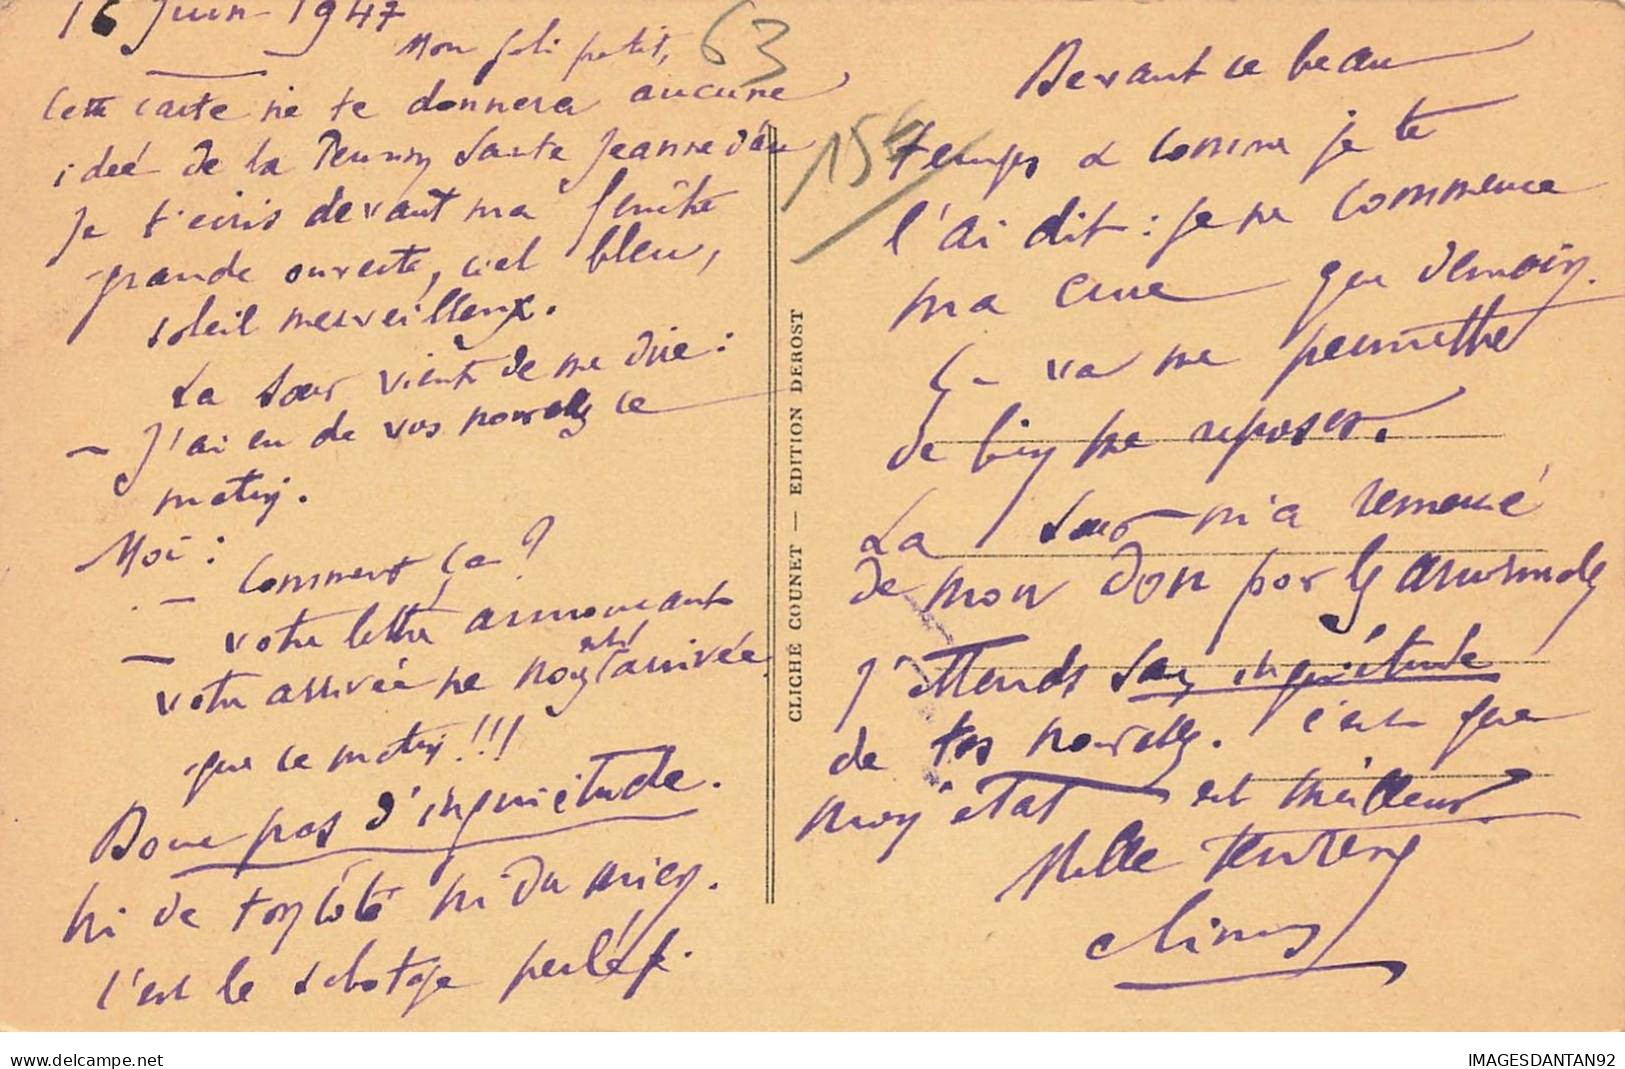 16 Juin 1947
Mon joli petit,
Cette carte ne te donnera aucune
idée de la Sainte Jeanne d'Arc
Je t'écris devant ma fenêtre
grande ouverte, ciel bleu,
soleil merveilleux.
La Sœur vient de me dire :
— J'ai eu de vos nouvelles ce
matin.
Moi :
— Comment ça ?
— votre lettre annonçant
votre arrivée ne n'est arrivée
que ce matin !!!
Donc pas d'inquiétude.
ni de ton côté ni du mien.
C'est le sabotage perlé
63
15
CLICHÉ COUNET — EDITION DEROST
Devant ce beau
temps & comme je te
l'ai dit : je ne commence
ma cure que demain.
Ça va me permettre
de bien me reposer.
La Sœur m'a remercié
de mon don pour les
J'attends sans inquiétude
de tes nouvelles. C'est que
mon état est meilleur.
Mille tendres
câlins
www.delcampe.net
IMAGESDANTAN92